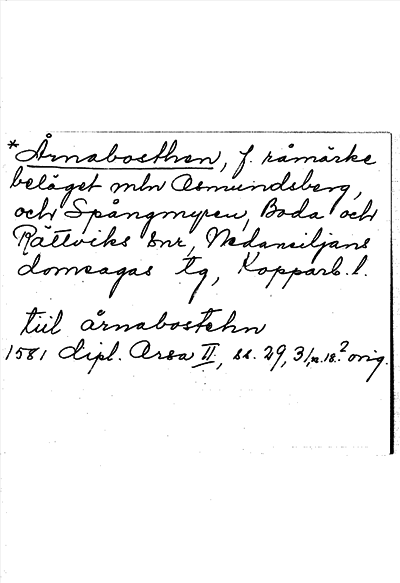 *Årnabosthen, f. råmärke
beläget mln Osmundsberg,
och Spångmyren, Boda och
Rättviks snr, Nedansiljans
domsagas tg, Kopparb. l.
tiil årnabostehn
1581 dipl. Orsa II, ss. 29, 31, n. 18.² orig.